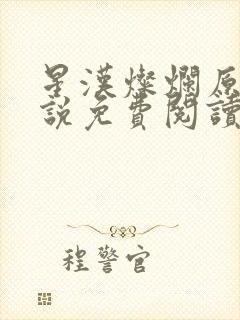 星漢燦爛原
說免費閱讀
程警官